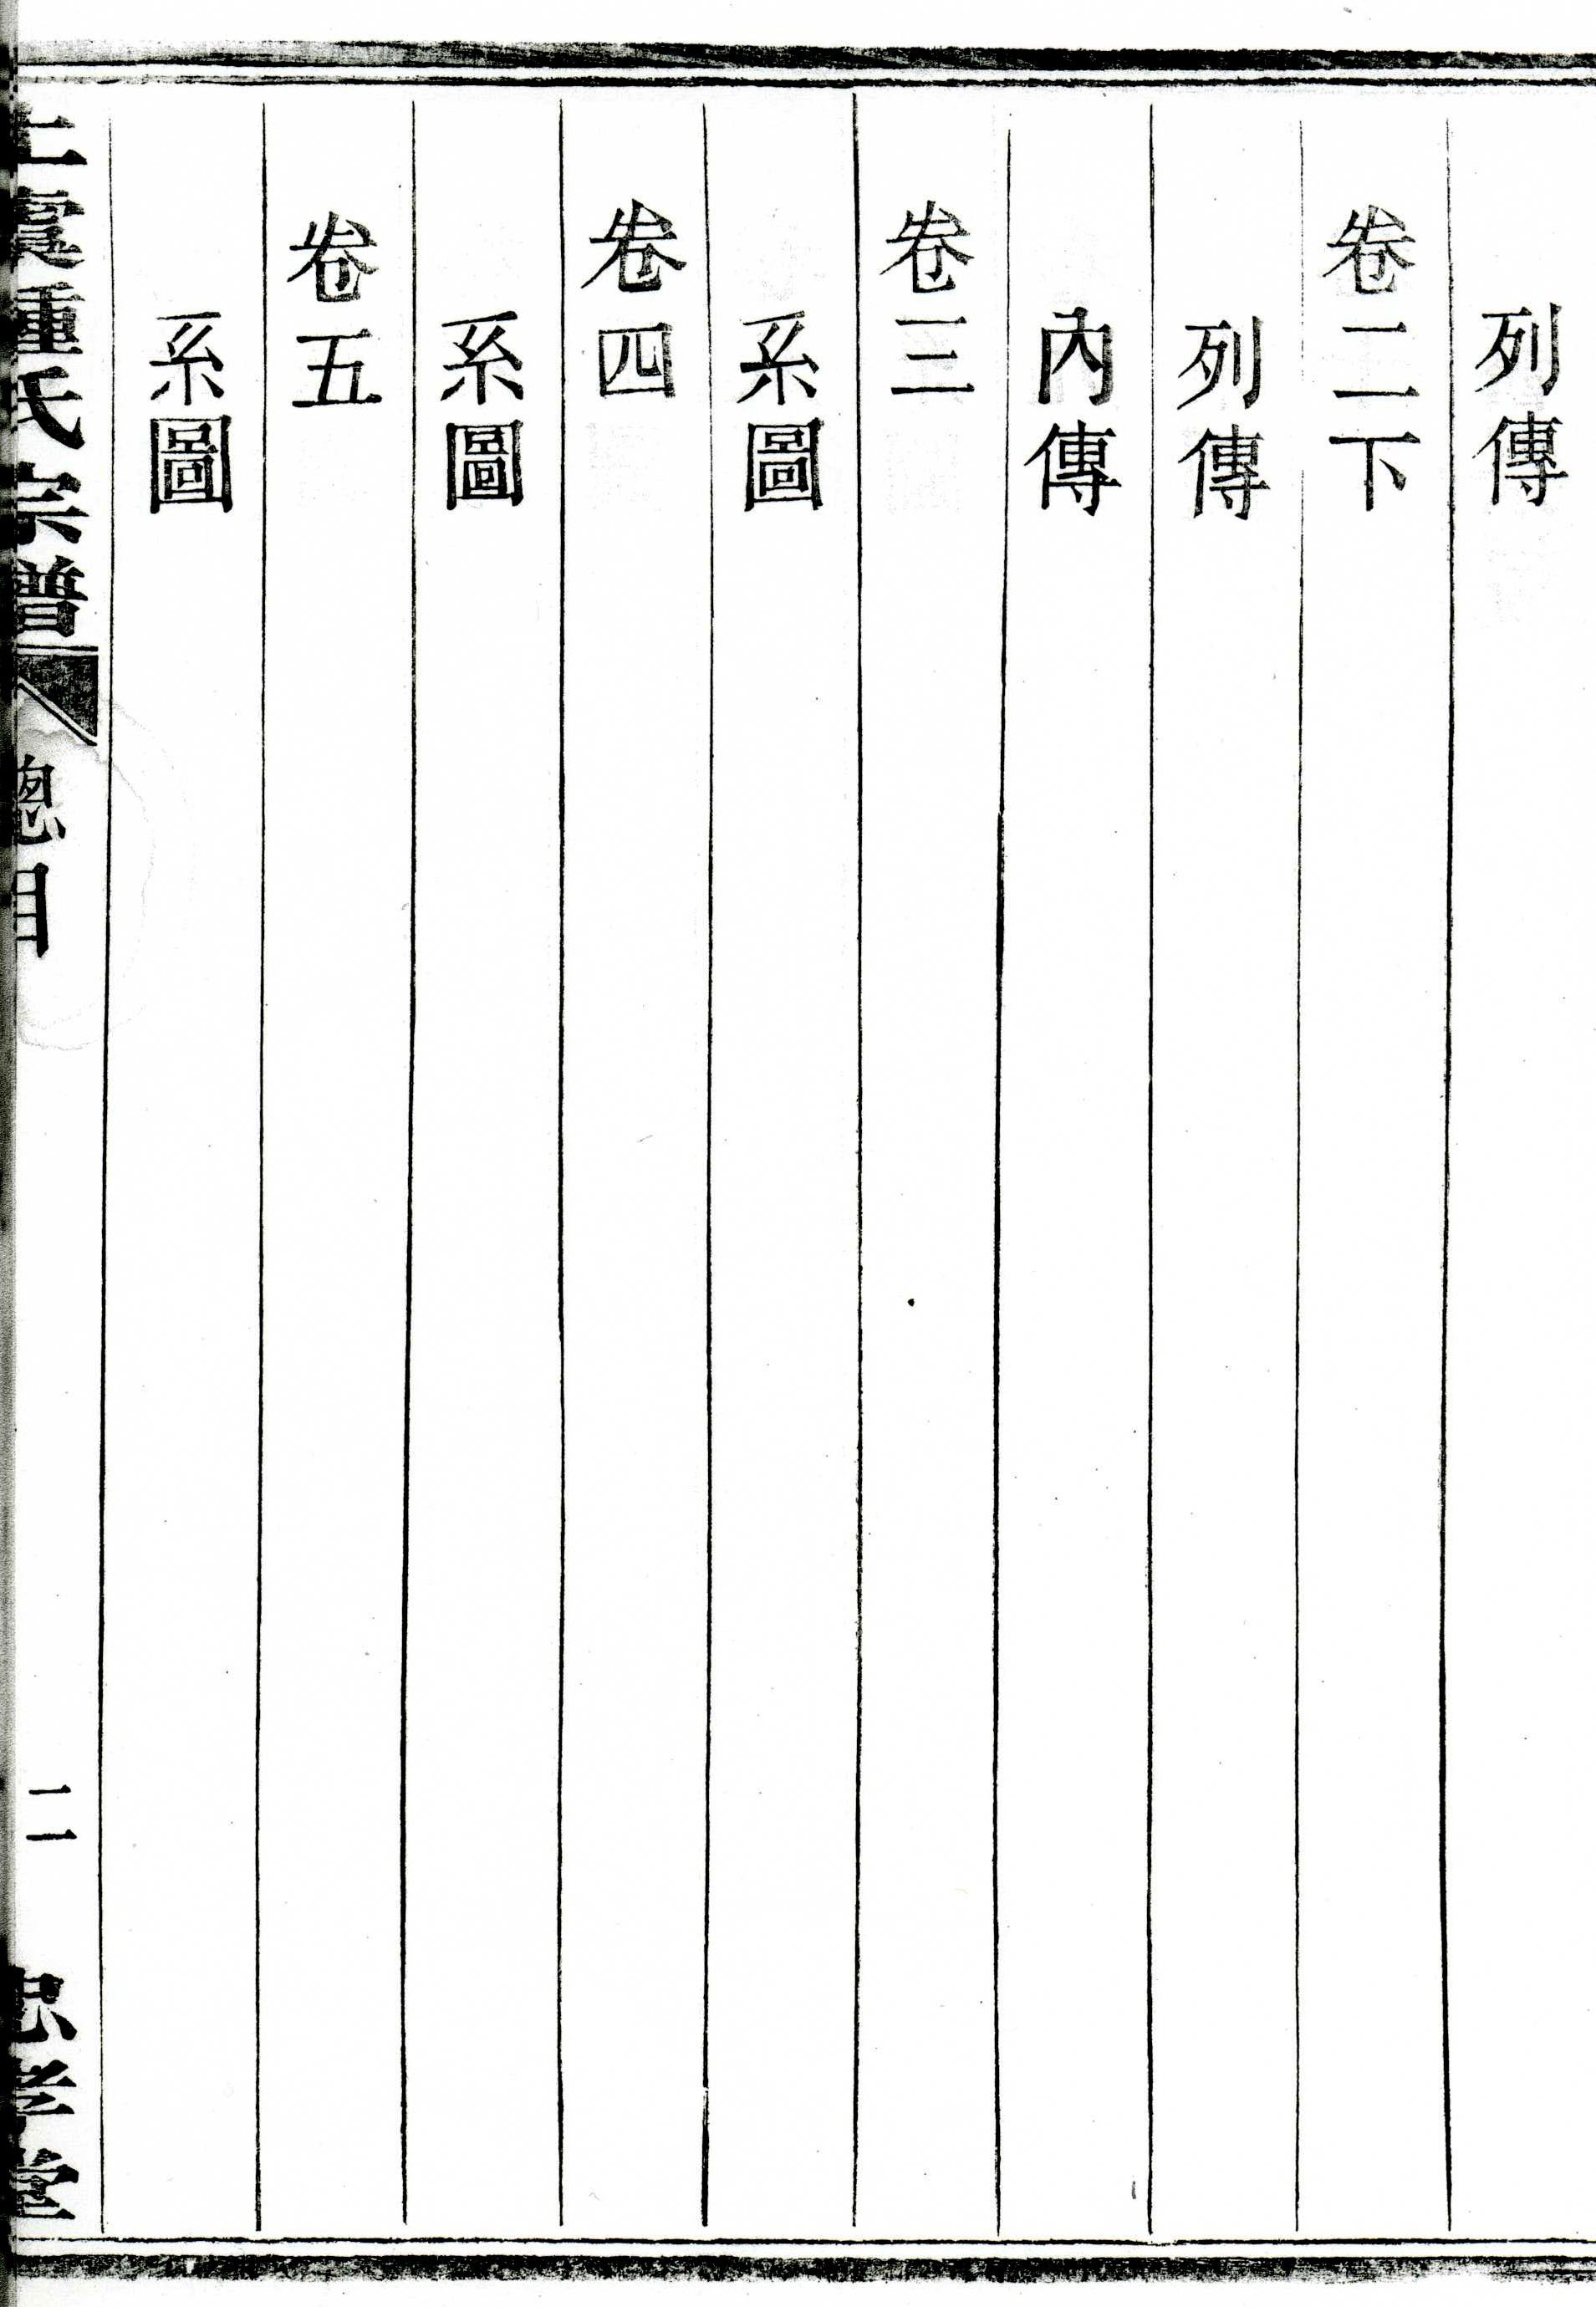 列傳
卷二下
列傳
內傳
卷三
系圖
卷四
系圖
卷五
系圖
上虞種氏宗譜
總目
二
忠孝堂